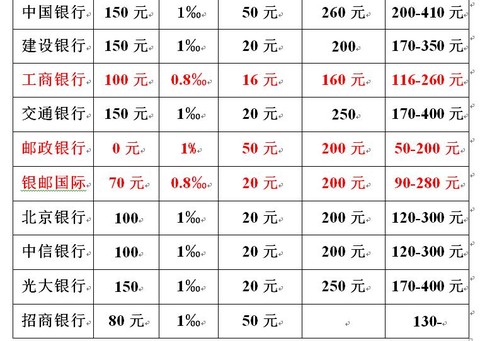 中国银行 150 元 1‰ 50 元 260 元 200-410 元
建设银行 150 元 1‰ 20 元 200 170-350 元
工商银行 100 元 0.8‰ 16 元 160 元 116-260 元
交通银行 150 元 1‰ 20 元 250 170-400 元
邮政银行 0 元 1% 50 元 200 元 50-200 元
银邮国际 70 元 0.8‰ 20 元 200 元 90-280 元
北京银行 100 1‰ 20 元 200 元 120-300 元
中信银行 100 1‰ 20 元 200 元 120-300 元
光大银行 150 1‰ 20 元 250 元 170-400 元
招商银行 80 元 1‰ 50 元 130-